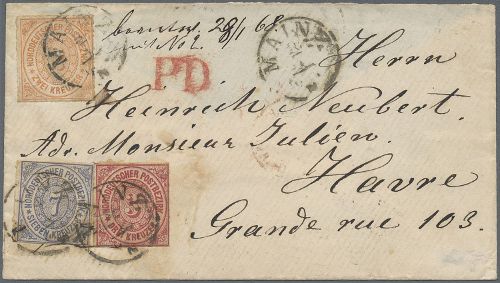 28/1 68
MAINZ
PD
Herrn
Heinrich Neubert.
Adr. Monsieur Julien.
Havre
Grande rue 103.
NORDDEUTSCHER POSTBEZIRK
ZWEI KREUZER
NORDDEUTSCHER POSTBEZIRK
7
SIEBEN KREUZER
NORDDEUTSCHER POSTBEZIRK
3
DREI KREUZER